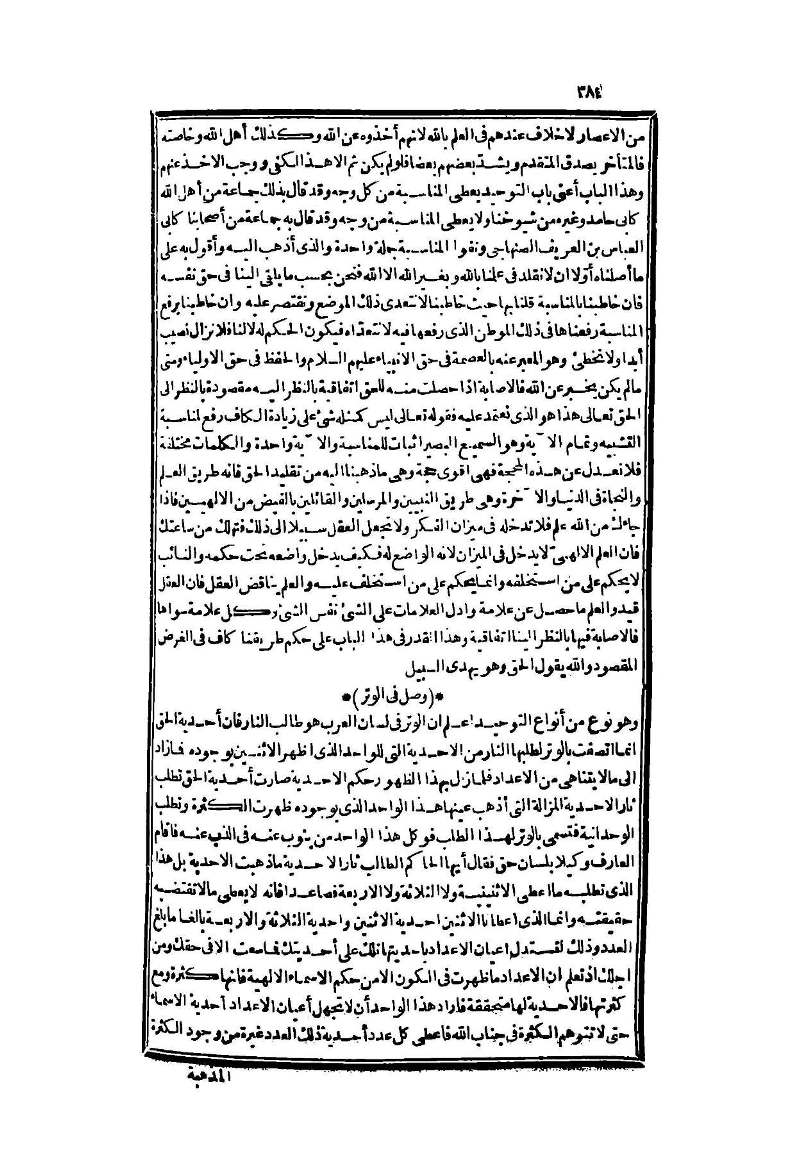 ٣٨٤
من الاعصار لا خلاف عندهم فى العلم بالله لانهم أخذوه عن الله وكذلك أهل الله وخاصته
فالمتأخر يصدق المتقدم ويشد بعضهم بعضا فلو لم يكن ثم الا هذا لكفى ووجب الاخذ عنهم
وهذا الباب أعنى باب التوحيد يعطى المناسبة من كل وجه وقد قال بذلك جماعة من أهل الله
كابى حامد وغيره من شيوخنا ولا يعطى المناسبة من وجه وقد قال به جماعة من أصحابنا كابى
العباس بن العريف الصنهاجى ونفوا المناسبة جملة واحدة والذى أذهب اليه وأقول به على
ما أصلناه أولا ان لا نقلد فى علمنا بالله وبغير الله الا الله فنحن بحسب ما يلقى الينا فى حق نفسه
فان خاطبنا بالمناسبة قلنا بها حيث خاطبنا لا نتعدى ذلك الموضع ونقتصر عليه وان خاطبنا برفع
المناسبة رفعناها فى ذلك الموطن الذى رفعها فيه لا نتعداه فيكون الحكم له لا لنا فلا نزال نصيب
أبدا ولا نخطئ وهو المعبر عنه بالعصمة فى حق الانبياء عليهم السلام والحفظ فى حق الاولياء ومتى
مالم يكن يخبر عن الله فالاصابة اذا حصلت منه للحق اتفاقية بالنظر اليه مقصودة بالنظر الى
الحق تعالى هذا هو الذى نعتمد عليه فقوله تعالى ليس كمثله شئ على زيادة الكاف رفع لمناسبة
التشبيه وتمام الآية وهو السميع البصير اثبات للمناسبة والآية واحدة والكلمات مختلفة
فلا نعدل عن هذه المحجة فهى اقوى حجة وهى ما ذهبنا اليه من تقليد الحق فانه طريق العلم
والنجاة فى الدنيا والآخرة وهى طريق النبيين والمرسلين والقائلين بالفيض من الالهيين فاذا
جاءك من الله علم فلا تدخله فى ميزان الفكر ولا تجعل العقل سبيلا الى ذلك فتهلك من ساعتك
فان العلم الالهىّ لا يدخل فى الميزان لانه الواضع له فكيف يدخل واضعه تحت حكمه والنائب
لا يحكم على من استخلفه وانما يحكم على من استخلف عليه والعلم يناقض العقل فان العقل
قيد والعلم ما حصل عن علامة وادل العلامات على الشئ نفس الشئ وكل علامة سواها
فالاصابة فيها بالنظر الينا اتفاقية وهذا القدر فى هذا الباب على حكم طريقنا كاف فى الغرض
المقصود والله يقول الحق وهو يهدى السبيل
*(وصل فى الوتر)*
وهو نوع من أنواع التوحيد اعلم ان الوتر فى لسان العرب هو طالب الثار فان أحدية الحق
انما اتصفت بالوتر لطلبها الثار من الاحدية التى للواحد الذى اظهر الاثنين بوجوده فازاد
الى ما لا يتناهى من الاعداد فلما زل بهذا الظهور حكم الاحدية صارت أحدية الحق تطلب
ثار الاحدية المزالة التى أذهب عينها هذا الواحد الذى بوجوده ظهرت الكثرة وتطلب
الوحدانية فتسمى بالوتر لهذا الطلب فوكل هذا الواحد من ينوب عنه فى الذب عنه فاقام
العارف وكيلا بلسان حق فقال أيها الحاكم الطالب ثار الاحدية ما ذهبت الاحدية بل هذا
الذى تطلبه ما اعطى الاثنينية ولا الثلاثة ولا الاربعة فصاعدا فانه لا يعطى ما لا تقتضيه
حقيقته وانما الذى اعطاها الاثنين احدية الاثنين واحدية الثلاثة والاربعة بالغا ما بلغ
العدد وذلك لتستدل اعيان الاعداد باحديتها تلك على أحديتك فما سعت الا فى حقك ومن
اجلك اذ تعلم ان الاعداد ما ظهرت فى الكون الا من حكم الاسماء الالهية فانها كثيرة ومع
كثرتها فالاحدية لها متحققة فاراد هذا الواحد أن لا تجهل أعيان الاعداد أحدية الاسماء
حتى لا تتوهم الكثرة فى جناب الله فاعطى كل عدد أحدية ذلك العدد غيرة من وجود الكثرة
المذهبة